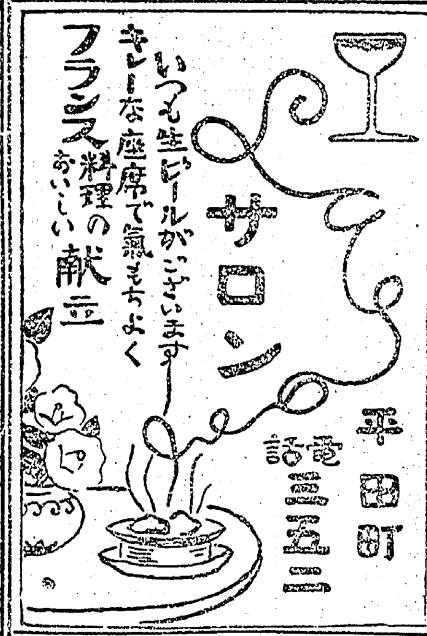 平田町
電話三五二
サロン
いつも生ビールがございます
キレーな座席で氣もちよく
フランス料理の
おいしい
献立